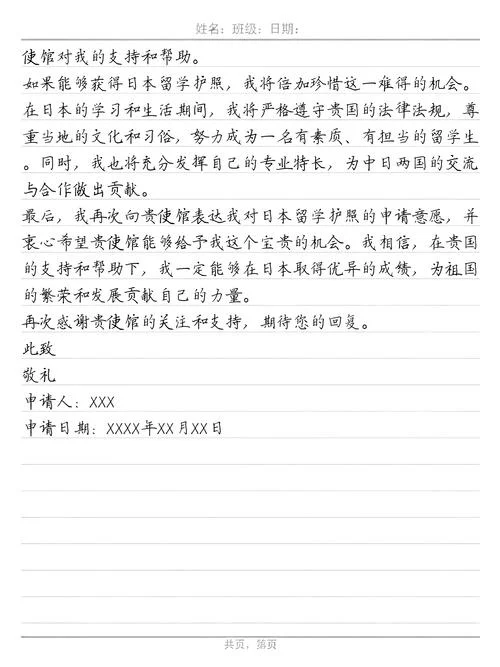 姓名：班级：日期：
使馆对我的支持和帮助。
如果能够获得日本留学护照，我将倍加珍惜这一难得的机会。
在日本的学习和生活期间，我将严格遵守贵国的法律法规，尊
重当地的文化和习俗，努力成为一名有素质、有担当的留学生
。同时，我也将充分发挥自己的专业特长，为中日两国的交流
与合作做出贡献。
最后，我再次向贵使馆表达我对日本留学护照的申请意愿，并
衷心希望贵使馆能够给予我这个宝贵的机会。我相信，在贵国
的支持和帮助下，我一定能够在日本取得优异的成绩，为祖国
的繁荣和发展贡献自己的力量。
再次感谢贵使馆的关注和支持，期待您的回复。
此致
敬礼
申请人：XXX
申请日期：XXXX年XX月XX日
共页，第页